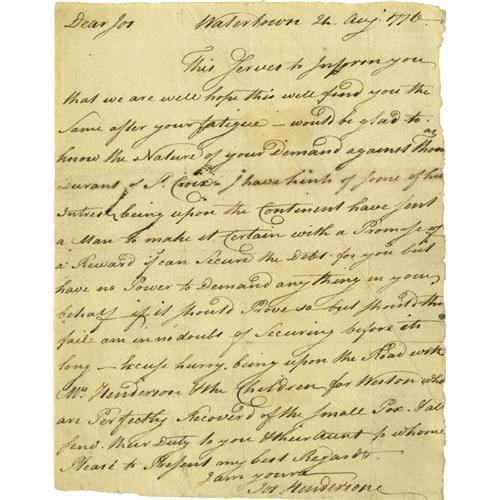 Dear Jos Watertown 24 Aug. 1776
This Serves to Inform you
that we are well hope this will find you the
Same after your fatigue – would be glad to
know the Nature of your Demand against Thoas
Durant of St. Croix – I have hints of Some of his
Intrest being upon the Continent have sent
a Man to make it Certain with a Promise of
a Reward if can Secure the Debt for you but
have no Power to Demand any thing in your
behalf if it should Prove so but should this
fail am in no doubs of Securing before its
long – Excuse hurry, being upon the Road with
Mrs. Henderson & the Children for Weston who
are Perfectly Recoverd of the Small Pox. & al
send their Duty to you & their Aunt to whome
Please to Present my best Regards.
I am yours
Jos Henderson